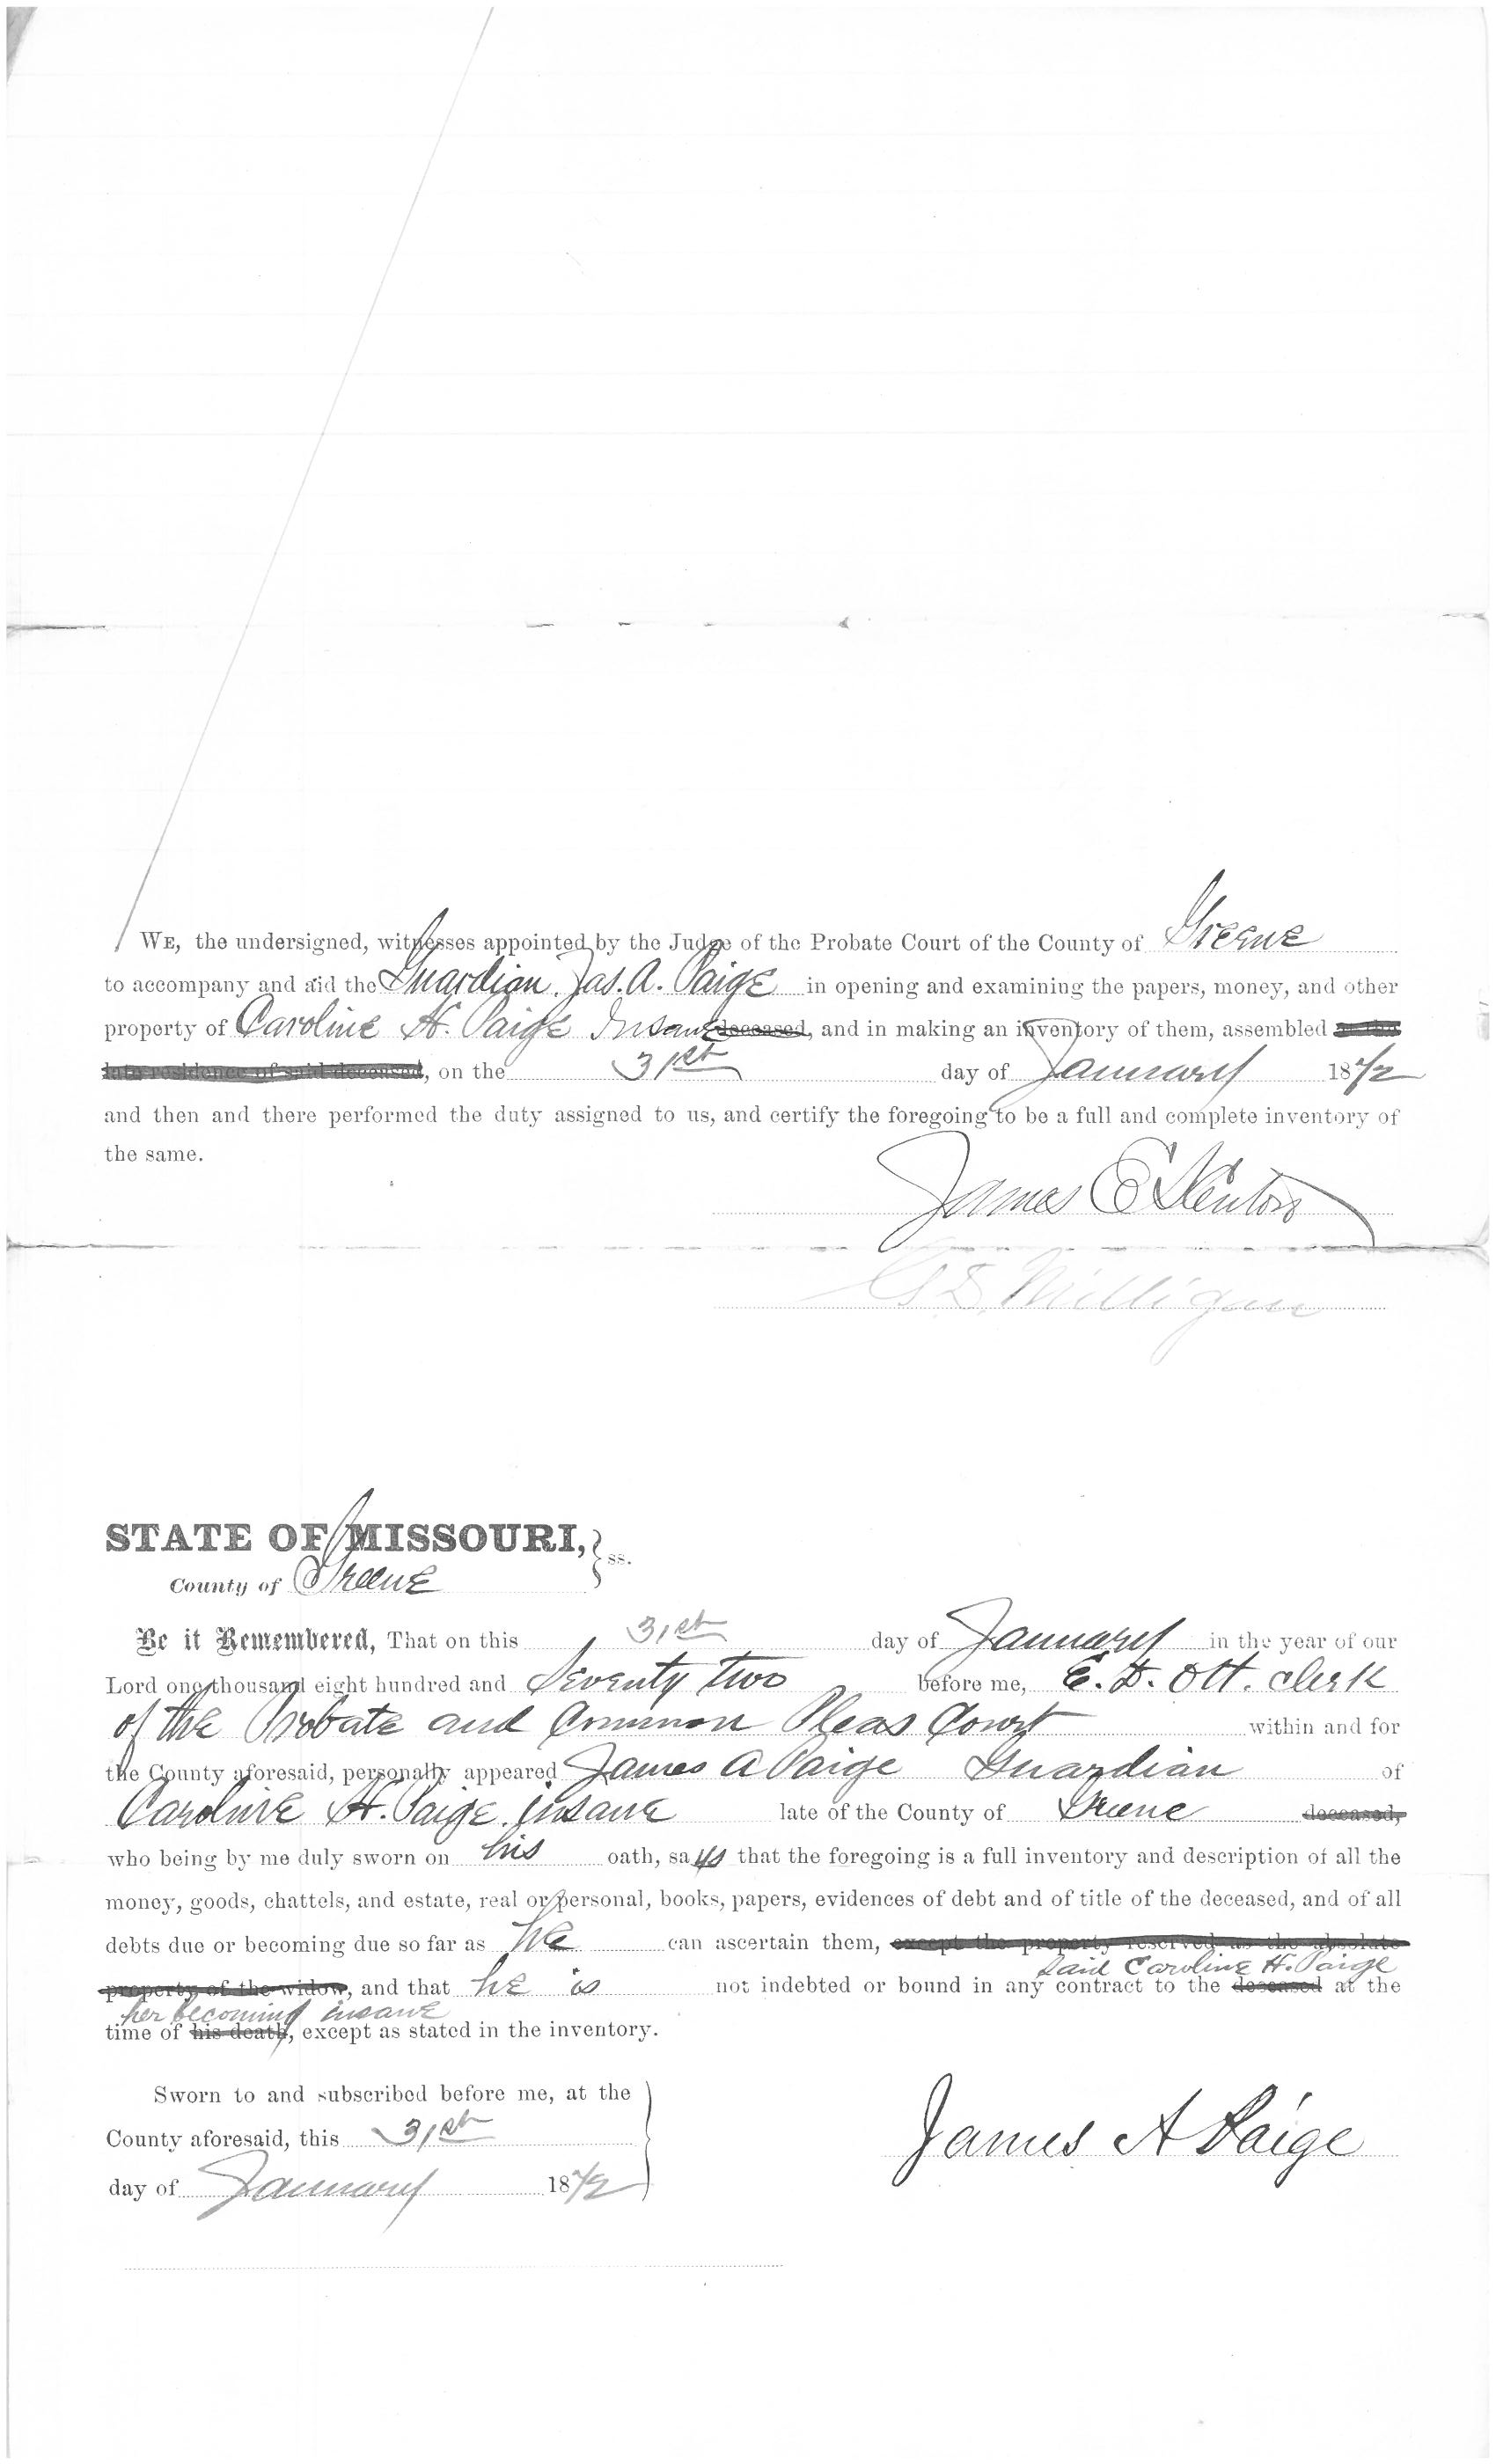 WE, the undersigned, witnesses appointed by the Judge of the Probate Court of the County of Greene
to accompany and aid the Guardian Jas. A. Paige in opening and examining the papers, money, and other
property of Caroline H. Paige Insane deceased, and in making an inventory of them, assembled at the
late residence of said deceased, on the 31st day of January 1872
and then and there performed the duty assigned to us, and certify the foregoing to be a full and complete inventory of
the same.
James E
Milligan
STATE OF MISSOURI, } ss.
County of Greene
Be it Remembered, That on this 31st day of January in the year of our
Lord one thousand eight hundred and Seventy two before me, E. D. Ott. Clerk
of the Probate and Common Pleas Court within and for
the County aforesaid, personally appeared James A Paige Guardian of
Caroline H. Paige insane late of the County of Greene deceased,
who being by me duly sworn on his oath, says that the foregoing is a full inventory and description of all the
money, goods, chattels, and estate, real or personal, books, papers, evidences of debt and of title of the deceased, and of all
debts due or becoming due so far as he can ascertain them, except the property reserved as the absolute
said Caroline H. Paige
property of the widow, and that he is not indebted or bound in any contract to the deceased at the
her becoming insane
time of his death, except as stated in the inventory.
Sworn to and subscribed before me, at the
County aforesaid, this 31st
day of January 1872
James A Paige